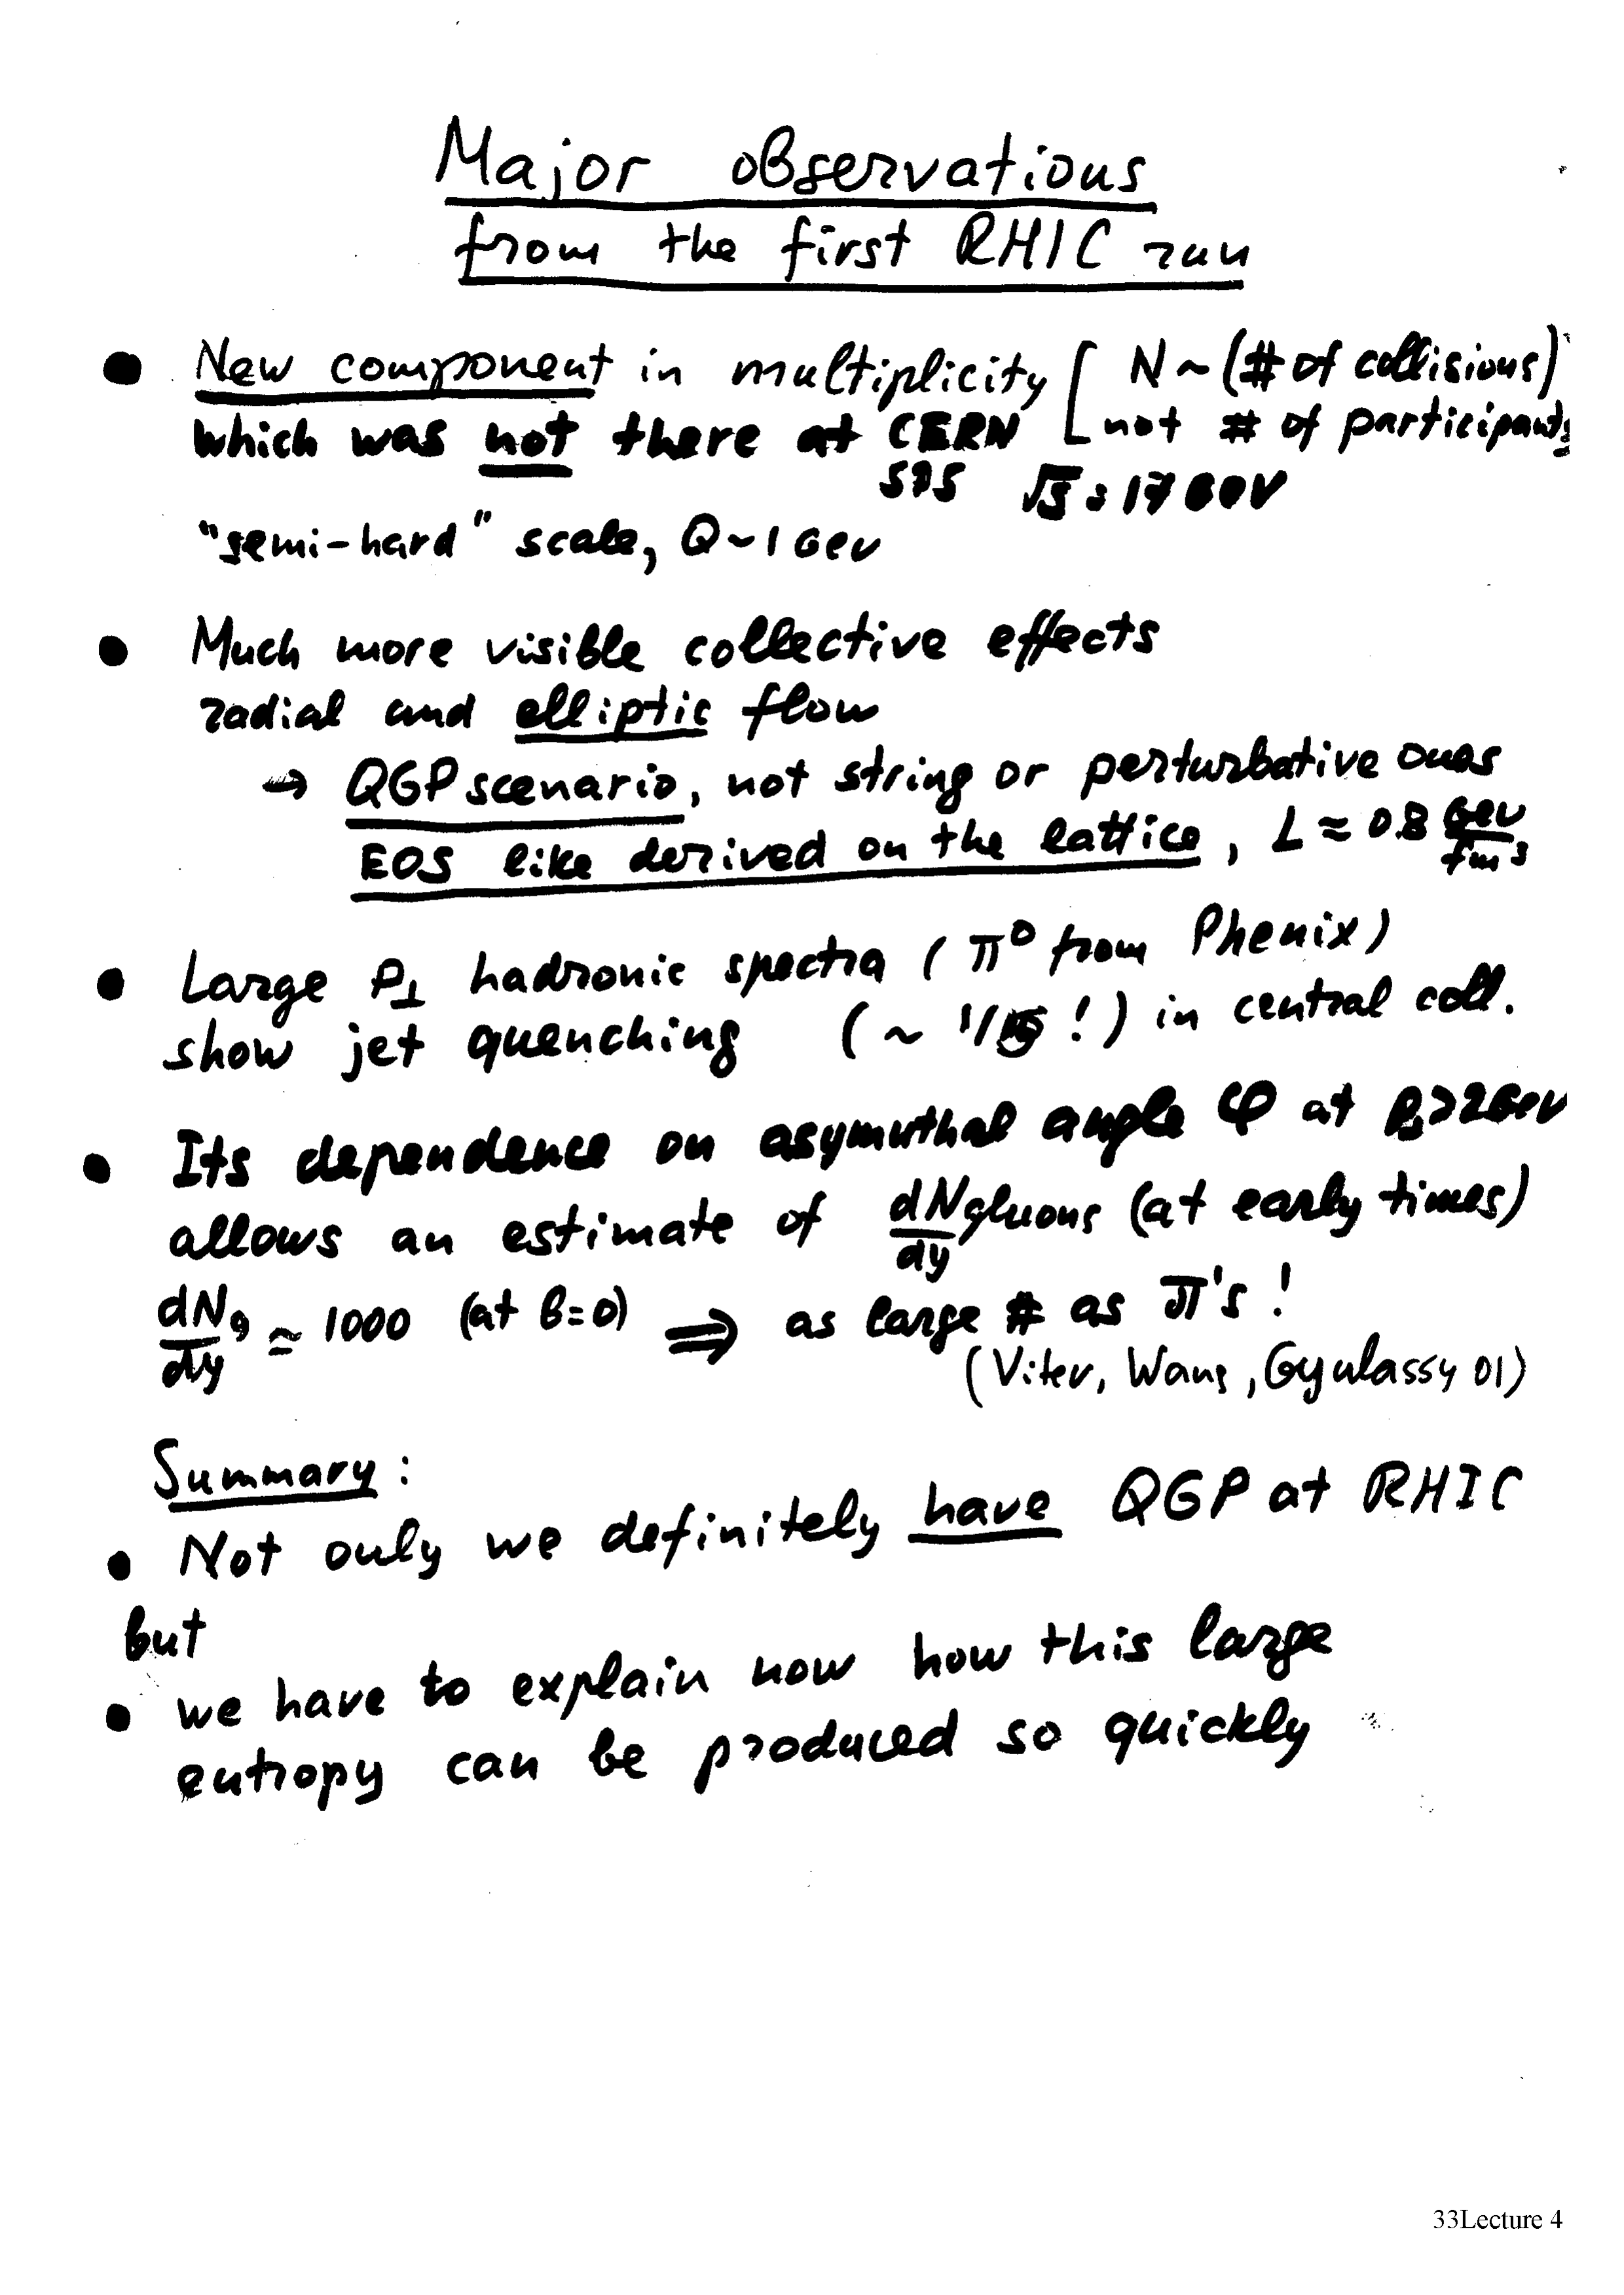 Major observations
from the first RHIC run
● New component in multiplicity [ N ~ (# of collisions)
which was not there at CERN [ not # of participants
SPS √s = 17 GeV
"semi-hard" scale, Q ~ 1 GeV
● Much more visible collective effects
radial and elliptic flow
→ QGP scenario, not string or perturbative ones
EOS like derived on the lattice, L ≈ 0.8 GeV/fm³
● Large P⊥ hadronic spectra (π⁰ from Phenix)
show jet quenching (~ !) in central coll.
● Its dependence on asymuthal angle φ at P⊥>2GeV
allows an estimate of dN/dy gluons (at early times)
dNg/dy ≃ 1000 (at b=0) ⇒ as large # as π's !
(Vitev, Wang, Gyulassy 01)
Summary:
● Not only we definitely have QGP at RHIC
but
● we have to explain now how this large
entropy can be produced so quickly
33Lecture 4